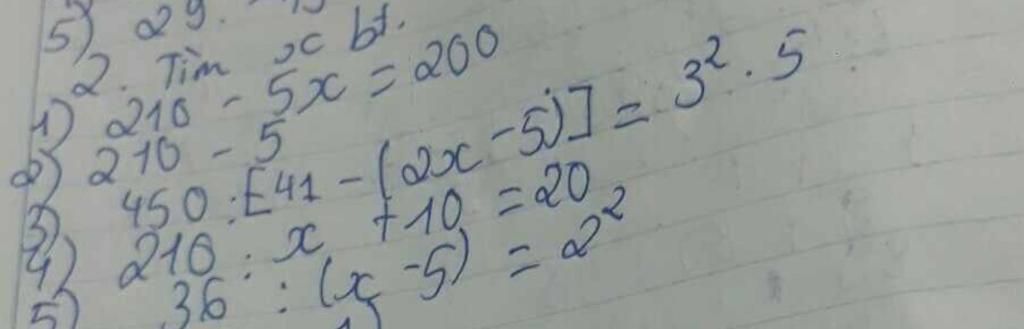 5) 29.
2. Tìm x bt.
1) 210 - 5x = 200
2) 210 - 5
3) 450 : [41 - (2x - 5)] = 3² . 5
4) 210 : x + 10 = 20
5) 36 : (x - 5) = 2²